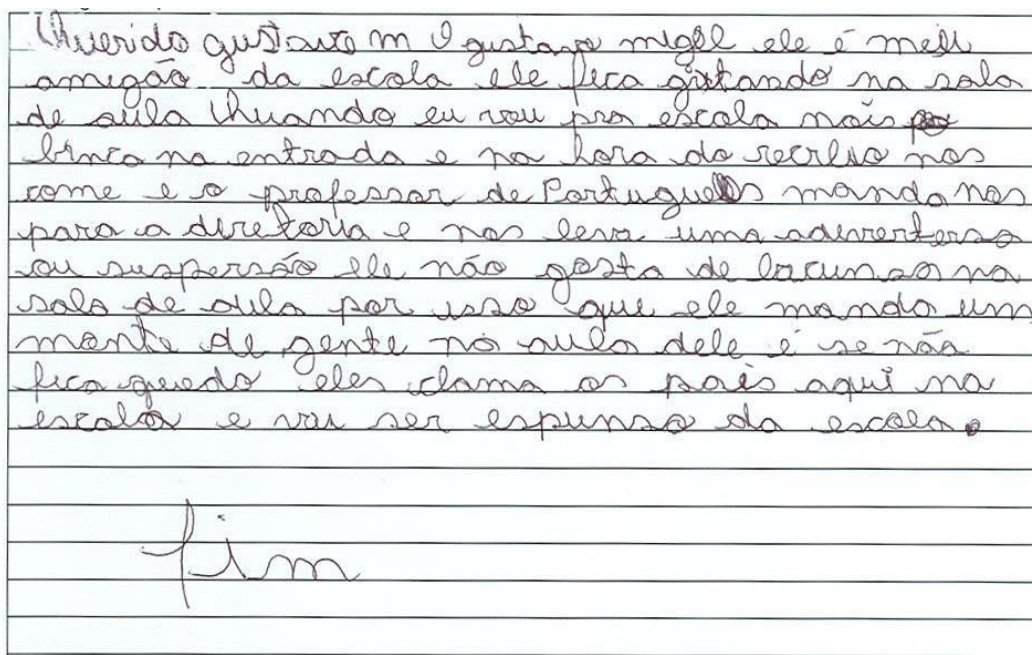 Querido gustavo m O gustavo migel ele é meu
amigão da escola ele fica gritando na sala
de aula Quando eu vou pra escola nóis
binca na entrada e na hora do recreio nos
come e o professor de Portugues manda nos
para a diretoria e nos leva uma adverterso
ou suspersão ele não gosta de bacunsa na
sala de aula por isso que ele manda um
monte de gente na aula dele é se não
fica quedo eles clama os pais aqui na
escola e vai ser espunso da escola.
fim